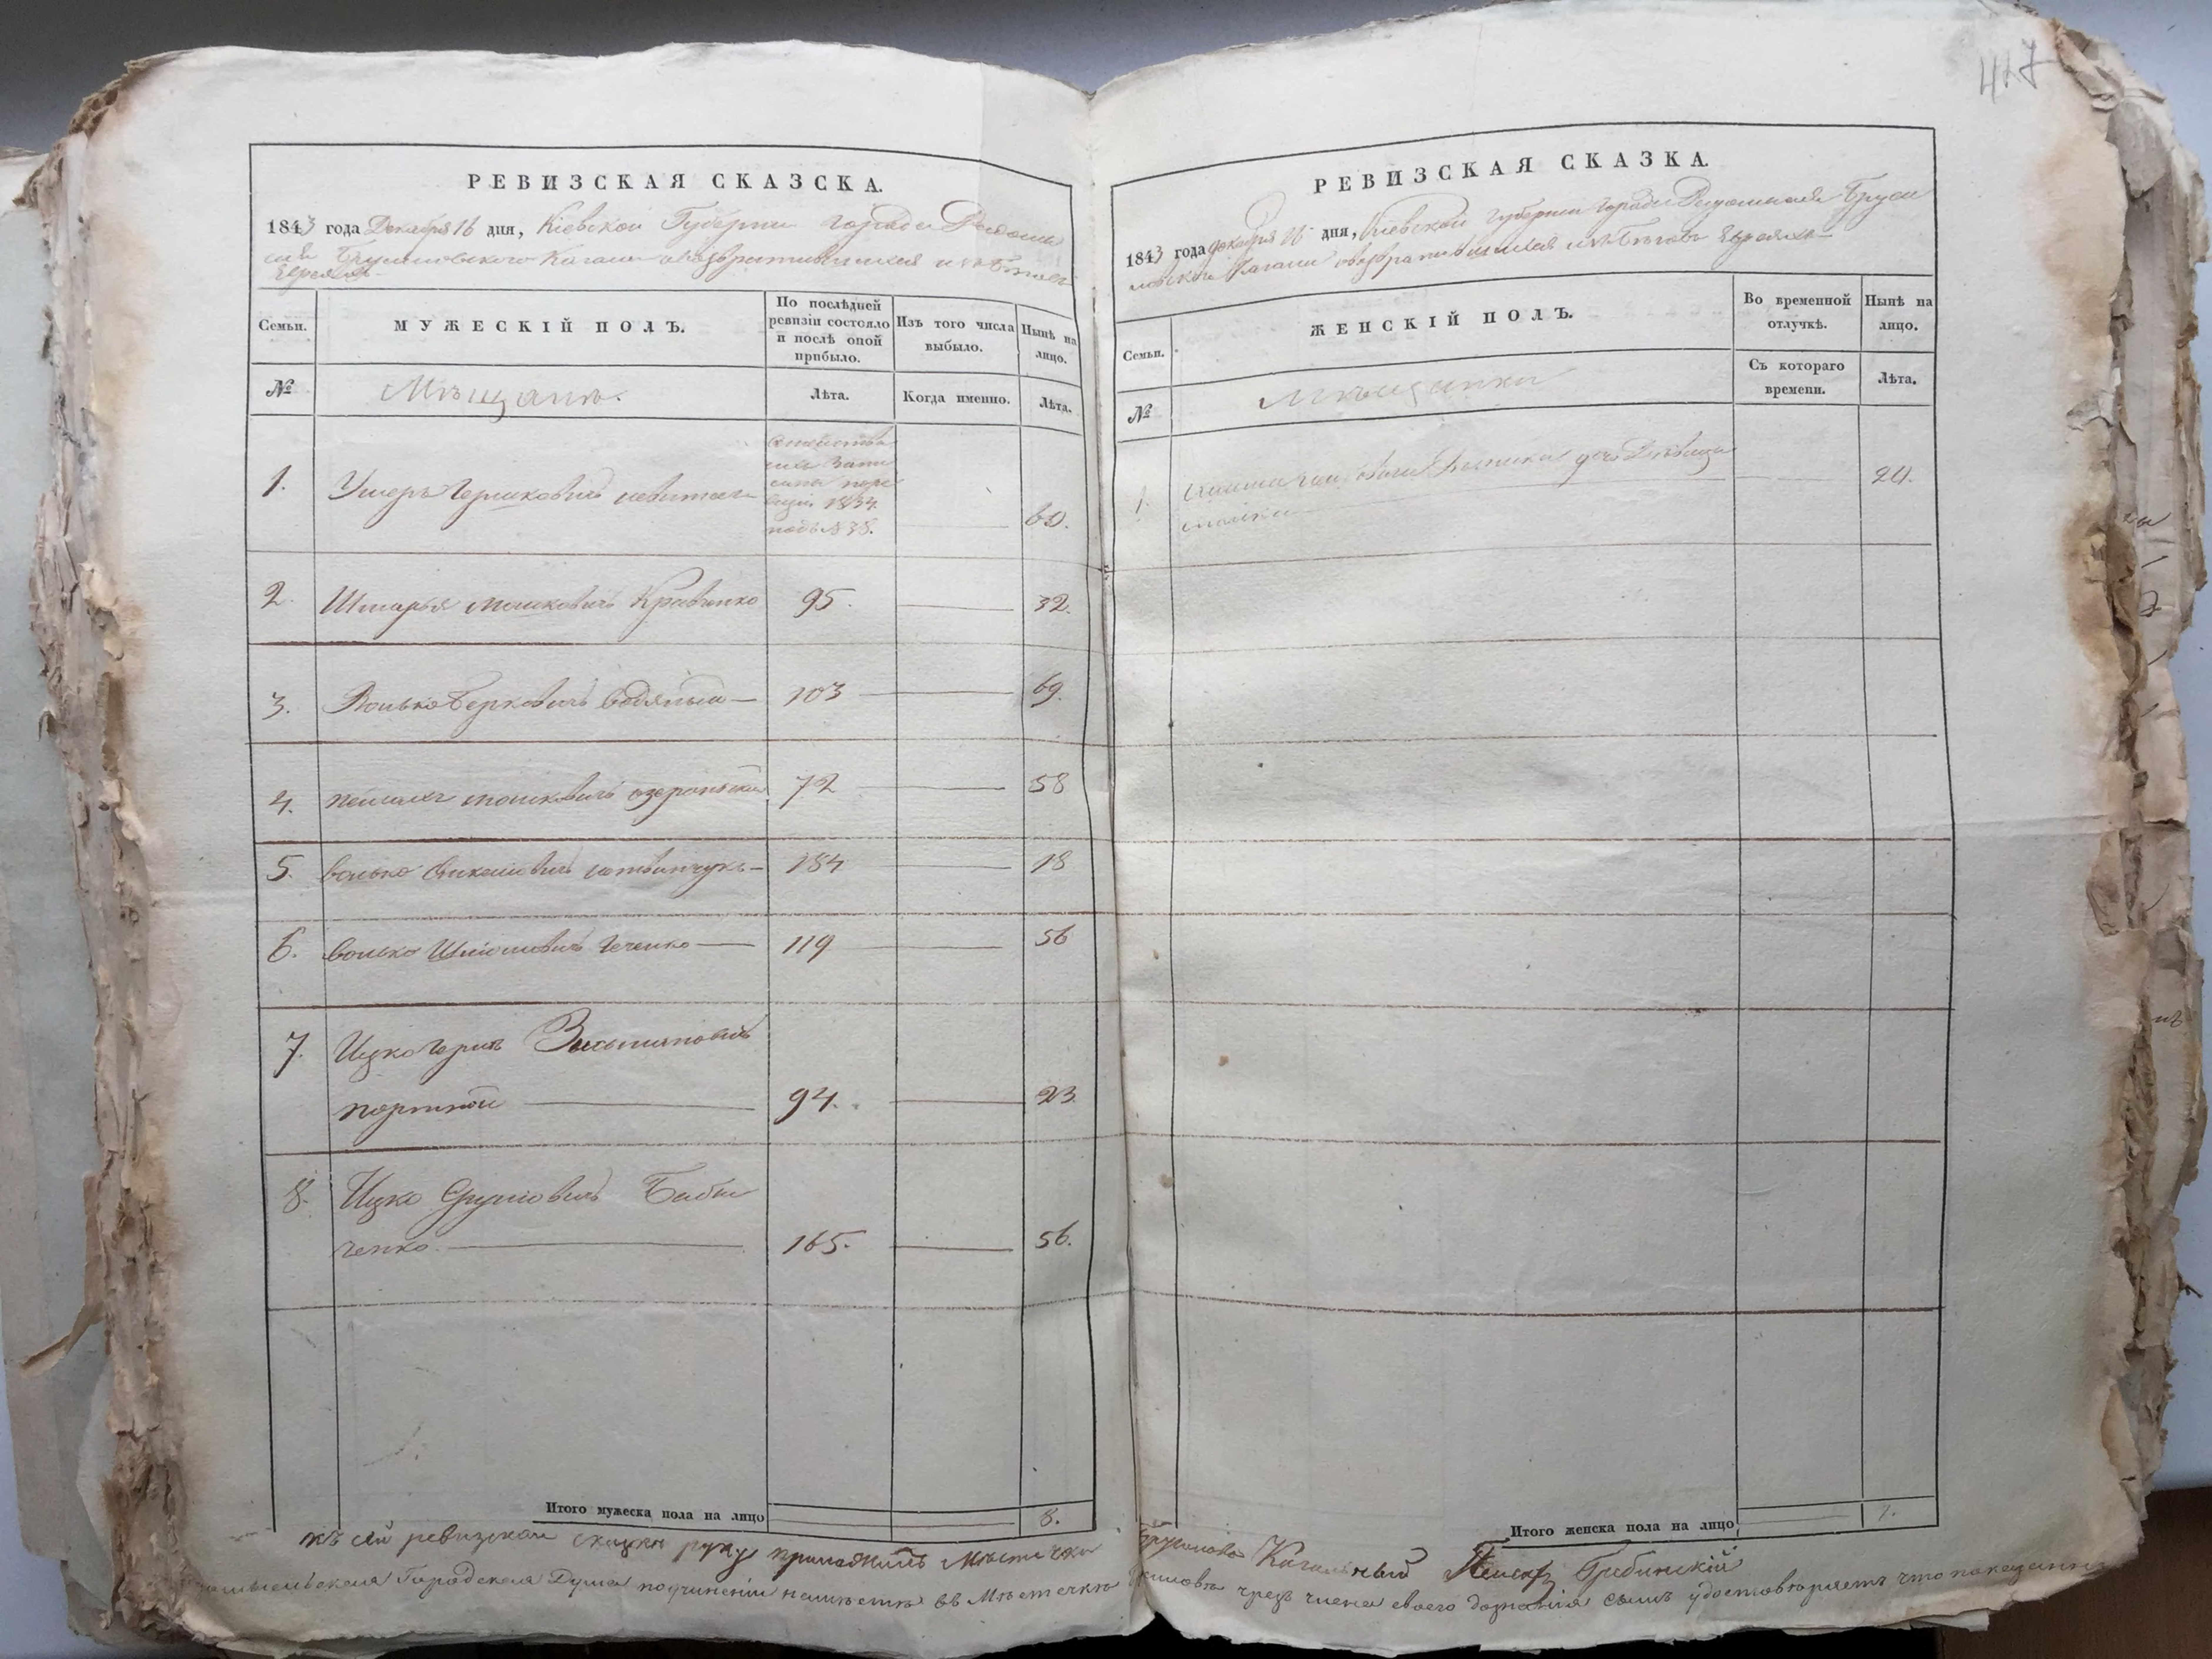 417
РЕВИЗСКАЯ СКАЗСКА.
1843 года Декабря 16 дня, Кіевской Губерніи города Радомы
сля Брусиловского Кагала о возвратившихся изъ бегов
Евреяхъ
Семьи.
МУЖЕСКІЙ ПОЛЪ.
По послѣдней ревизіи состояло и послѣ оной прибыло.
Изъ того числа выбыло.
Нынѣ на лицо.
№
Мѣщане.
Лѣта.
Когда именно.
Лѣта.
1.
Умеръ Гершковичъ
семейства
ихъ запи
саны по ре
визіи 1834
подъ № 38.
60.
2.
Шмарья Мошковичъ Кравченко
95.
32.
3.
Волько Берковичъ Водяный
103
69.
4.
Пейсахъ Мошковичъ Озерянский
72
58
5.
Волько Литвинчукъ
184
18
6.
Волько Геченко
119
56
7.
Ицко Гершъ
Портной
94.
23.
8.
Ицко Сруловичъ Баби
ченко.
165.
56.
Итого мужеска пола на лицо
8.
РЕВИЗСКАЯ СКАЗКА.
1843 года декабря 16 дня, Кіевской губерніи города Радомысля Бруси
ловскаго Кагала о возвратившихся изъ бегов Евреяхъ
Семьи.
ЖЕНСКІЙ ПОЛЪ.
Во временной отлучкѣ.
Нынѣ на лицо.
№
Мѣщанки
Съ котораго времени.
Лѣта.
1.
дочь Девица
20.
Итого женска пола на лицо
1.
къ сей ревизской сказки руку приложилъ Мѣстечка Брусилова Кагальный Гребинскій
Городская Дума по учиненіи на мѣстѣ въ Мѣстечкѣ Брусиловѣ чрезъ члена своего дознанія симъ удостовѣряетъ что показанные